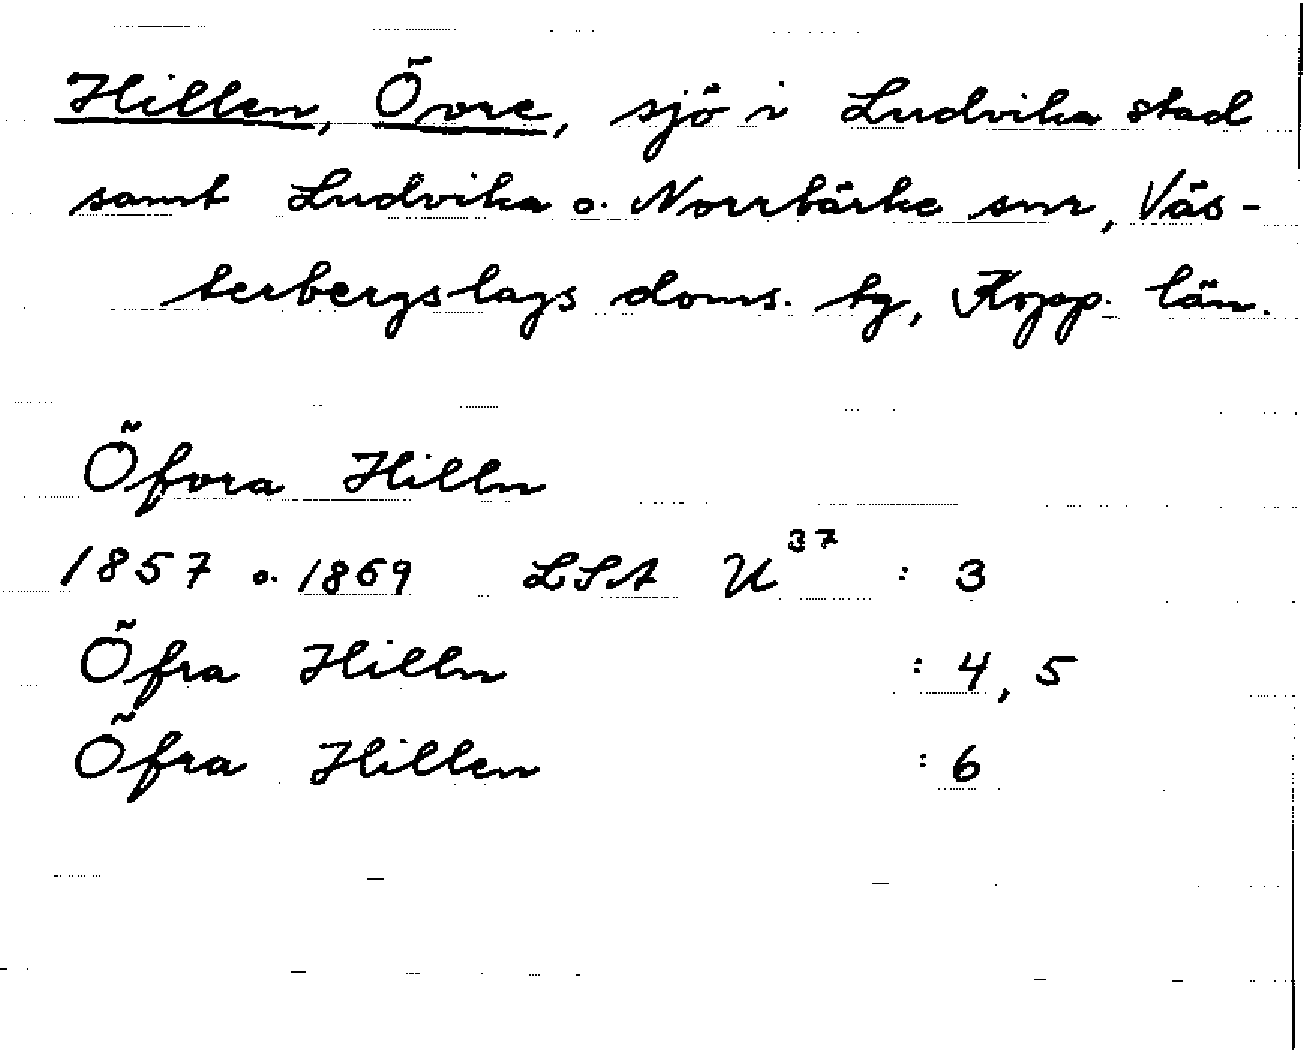 Hillen, Övre, sjö i Ludvika stad
samt Ludvika o. Norrbärke snr, Väs-
terbergslags doms. tg, Kopp. län.
Öfvra Hilln
1857 o. 1869 LSA U37 : 3
Öfra Hilln : 4, 5
Öfra Hillen : 6